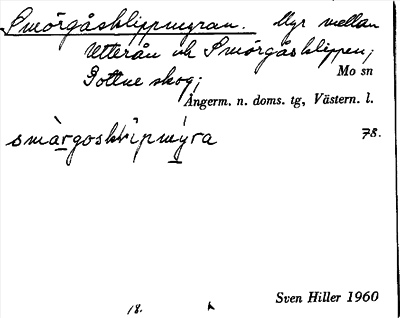 Smörgåsklippmyran. Myr mellan
Utterån och Smörgåsklippen,
Mo sn
Gottne skog;
Ångerm. n. doms. tg, Västern. l.
smàrgosklipmýra 78.
Sven Hiller 1960
18.